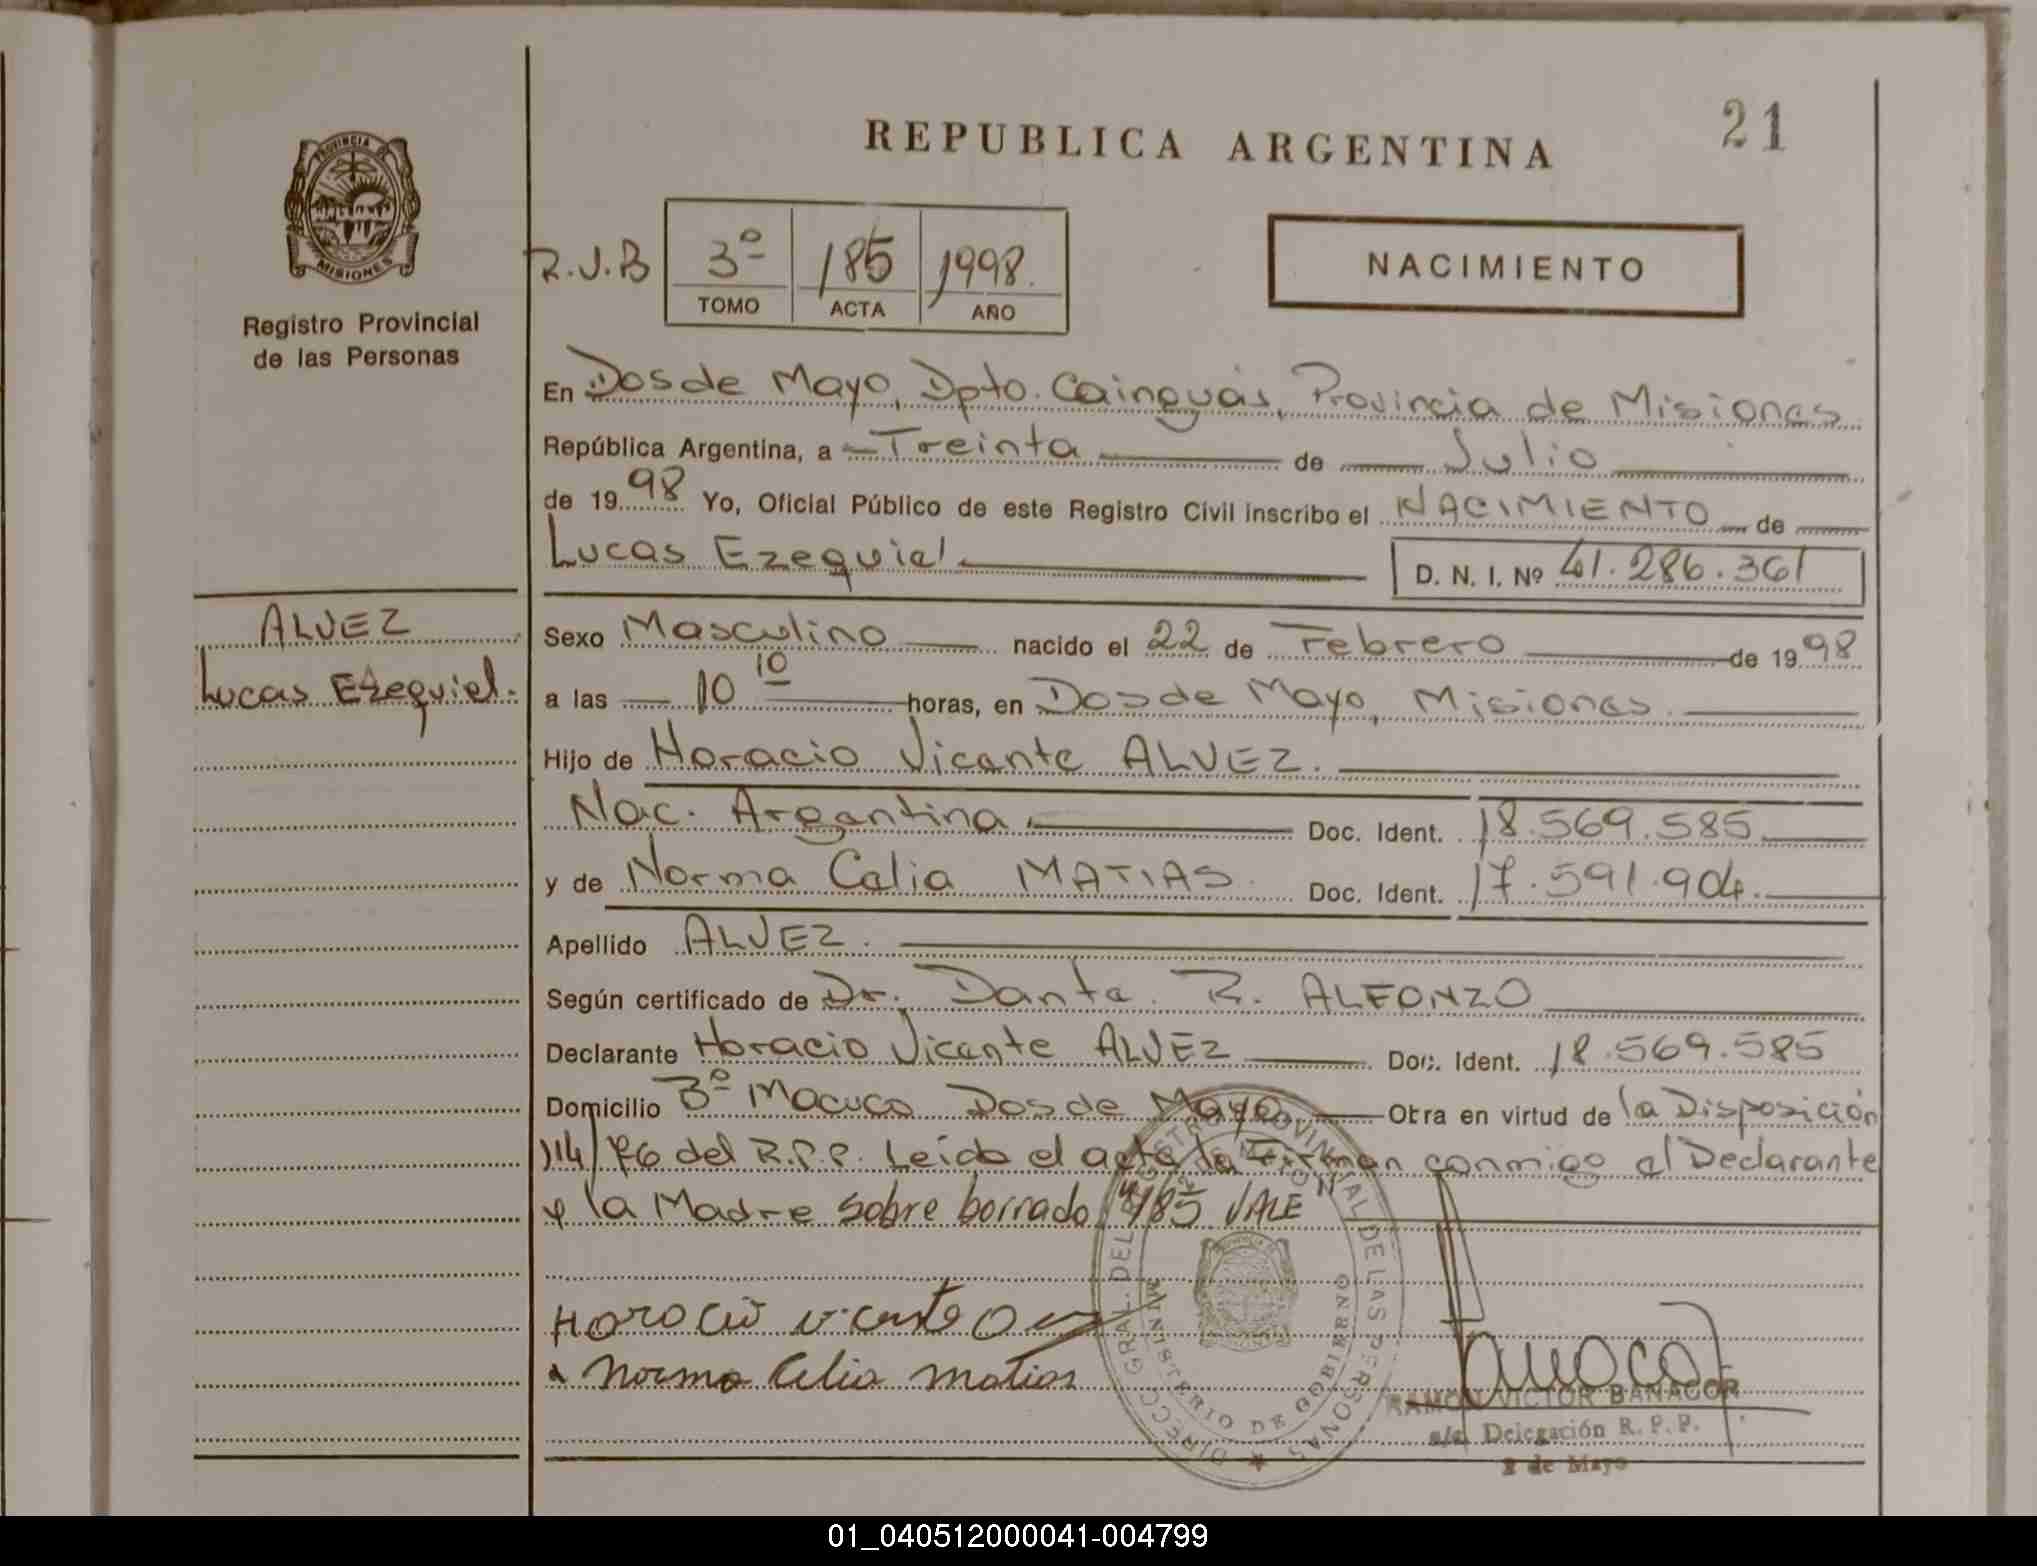 21
REPUBLICA ARGENTINA
PROVINCIA DE
MISIONES
Registro Provincial
de las Personas
R.J.B
3º TOMO
185 ACTA
1998. AÑO
NACIMIENTO
En Dos de Mayo, Dpto. Cainguás, Provincia de Misiones
República Argentina, a Treinta de Julio
de 1998 Yo, Oficial Público de este Registro Civil inscribo el NACIMIENTO de
Lucas Ezequiel D. N. I. Nº 41.286.361
ALVEZ
Lucas Ezequiel.
Sexo Masculino nacido el 22 de Febrero de 1998
a las 10 10 horas, en Dos de Mayo, Misiones.
Hijo de Horacio Vicente ALVEZ.
Nac. Argentina. Doc. Ident. 18.569.585
y de Norma Celia MATIAS. Doc. Ident. 17.591.904.
Apellido ALVEZ.
Según certificado de Dr. Dante. R. ALFONZO
Declarante Horacio Vicente ALVEZ Doc. Ident. 18.569.585
Domicilio Bº Macuco Dos de Mayo. Obra en virtud de la Disposición
114/76 del R.P.P. Leído el acta la Firman conmigo el Declarante
y la Madre sobre borrado "185 VALE"
Horacio vicente
Norma Celia Matias
DIRECC. GRAL. DEL REGISTRO PROVINCIAL DE LAS PERSONAS
MINISTERIO DE GOBIERNO
RAMON VICTOR BANACOR
a/c Delegación R. P. P.
2 de Mayo
01_040512000041-004799